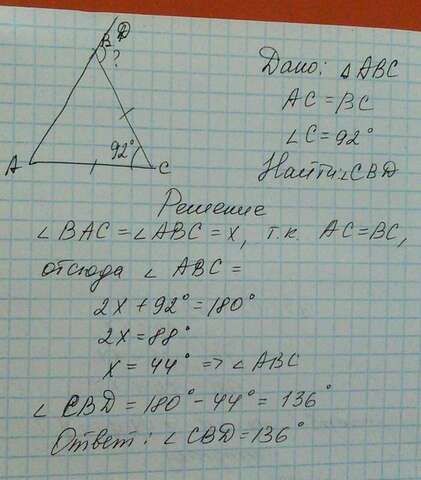 B D
?
92°
A
C
Дано: △ ABC
AC = BC
∠C = 92°
Найти: ∠CBD
Решение
∠ BAC = ∠ ABC = x, т.к. AC = BC,
отсюда ∠ ABC =
2x + 92° = 180°
2x = 88°
x = 44° => ∠ ABC
∠ CBD = 180° - 44° = 136°
Ответ: ∠ CBD = 136°